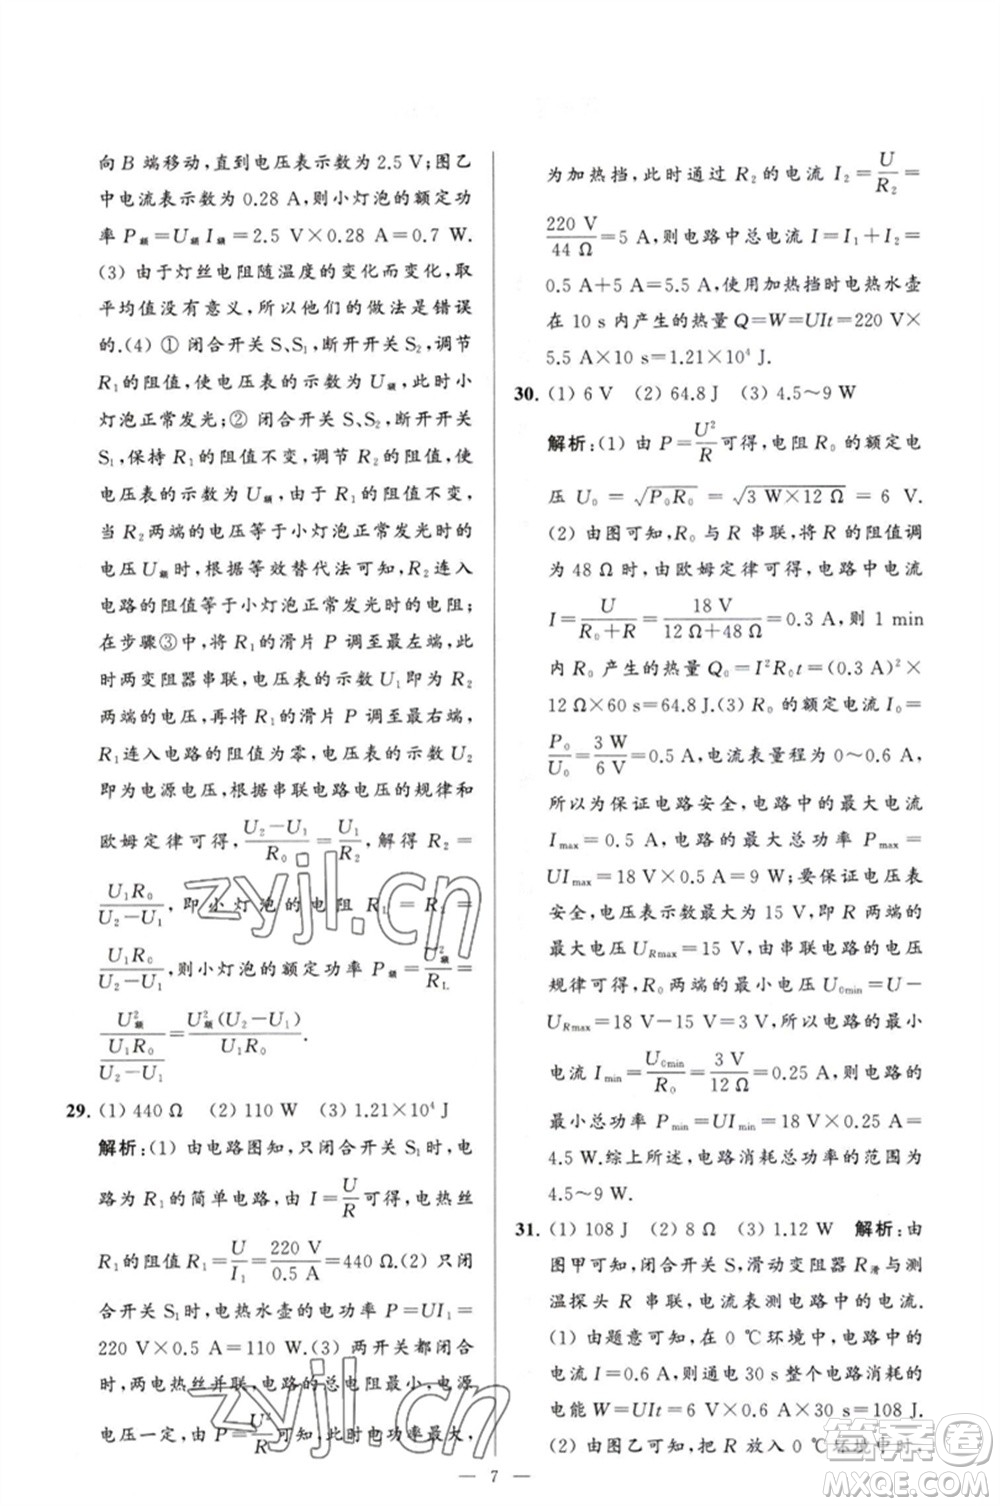 向 B 端移动,直到电压表示数为 2.5 V;图乙
中电流表示数为 0.28 A,则小灯泡的额定功
率 P额=U额 I额=2.5 V×0.28 A=0.7 W.
(3) 由于灯丝电阻随温度的变化而变化,取
平均值没有意义,所以他们的做法是错误
的.(4) ① 闭合开关 S、S₁,断开开关 S₂,调节
R₁的阻值,使电压表的示数为 U额,此时小
灯泡正常发光;② 闭合开关 S、S₂,断开开关
S₁,保持 R₁ 的阻值不变,调节 R₂ 的阻值,使
电压表的示数为 U额,由于 R₁ 的阻值不变,
当 R₂两端的电压等于小灯泡正常发光时的
电压 U额时,根据等效替代法可知,R₂连入
电路的阻值等于小灯泡正常发光时的电阻;
在步骤③中,将 R₁的滑片 P 调至最左端,此
时两变阻器串联,电压表的示数 U₁即为 R₂
两端的电压,再将 R₁的滑片 P 调至最右端,
R₁连入电路的阻值为零,电压表的示数 U₂
即为电源电压,根据串联电路电压的规律和
欧姆定律可得,(U₂−U₁)/R₀=U₁/R₂,解得 R₂=
U₁R₀/(U₂−U₁),即小灯泡的电阻 R_L=R₂=
U₁R₀/(U₂−U₁),则小灯泡的额定功率 P额=U额²/R_L=
U额²/(U₁R₀/(U₂−U₁))=U额²(U₂−U₁)/(U₁R₀).
29. (1) 440 Ω (2) 110 W (3) 1.21×10⁴ J
解析:(1) 由电路图知,只闭合开关 S₁时,电
路为 R₁ 的简单电路,由 I=U/R可得,电热丝
R₁的阻值 R₁=U/I₁=220 V/0.5 A=440 Ω.(2) 只闭
合开关 S₁时,电热水壶的电功率 P=UI₁=
220 V×0.5 A=110 W.(3) 两开关都闭合
时,两电热丝并联,电路的总电阻最小,电源
电压一定,由 P=U²/R可知,此时电功率最大,
为加热挡,此时通过 R₂ 的电流 I₂=U/R₂=
220 V/44 Ω=5 A,则电路中总电流 I=I₁+I₂=
0.5 A+5 A=5.5 A,使用加热挡时电热水壶
在 10 s 内产生的热量 Q=W=UIt=220 V×
5.5 A×10 s=1.21×10⁴ J.
30. (1) 6 V (2) 64.8 J (3) 4.5~9 W
解析:(1) 由 P=U²/R可得,电阻 R₀ 的额定电
压 U₀=√(P₀R₀)=√(3 W×12 Ω)=6 V.
(2) 由图可知,R₀ 与 R 串联,将 R 的阻值调
为 48 Ω 时,由欧姆定律可得,电路中电流
I=U/(R₀+R)=18 V/(12 Ω+48 Ω)=0.3 A,则 1 min
内 R₀ 产生的热量 Q₀=I²R₀t=(0.3 A)²×
12 Ω×60 s=64.8 J.(3) R₀ 的额定电流 I₀=
P₀/U₀=3 W/6 V=0.5 A,电流表量程为 0~0.6 A,
所以为保证电路安全,电路中的最大电流
Imax=0.5 A,电路的最大总功率 Pmax=
UImax=18 V×0.5 A=9 W;要保证电压表
安全,电压表示数最大为 15 V,即 R 两端的
最大电压 URmax=15 V,由串联电路的电压
规律可得,R₀ 两端的最小电压 U0min=U−
URmax=18 V−15 V=3 V,所以电路的最小
电流 Imin=U0min/R₀=3 V/12 Ω=0.25 A,电路的
最小总功率 Pmin=UImin=18 V×0.25 A=
4.5 W.综上所述,电路消耗总功率的范围为
4.5~9 W.
31. (1) 108 J (2) 8 Ω (3) 1.12 W 解析:由
图甲可知,闭合开关 S,滑动变阻器 R滑与测
温探头 R 串联,电流表测电路中的电流.
(1) 由题意可知,在 0 ℃环境中,电路中的
电流 I=0.6 A,则通电 30 s 整个电路消耗的
电能 W=UIt=6 V×0.6 A×30 s=108 J.
(2) 由图乙可知,把 R 放入 0 ℃环境中时,
— 7 —
zyjl.cn
zyjl.cn
答案圈
MXQE.COM